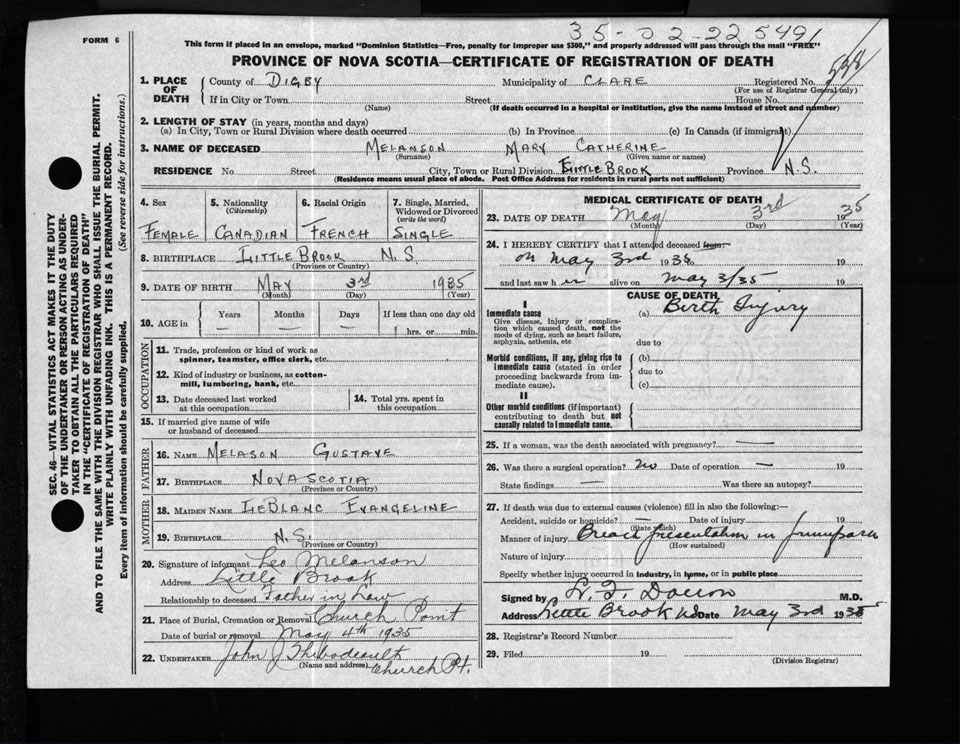 35-02-225491
FORM 6
This form if placed in an envelope, marked "Dominion Statistics—Free, penalty for improper use $300," and properly addressed will pass through the mail "FREE"
PROVINCE OF NOVA SCOTIA—CERTIFICATE OF REGISTRATION OF DEATH
1. PLACE OF DEATH County of DIGBY Municipality of CLARE Registered No.
(For use of Registrar General only)
If in City or Town Street House No.
(Name) (If death occurred in a hospital or institution, give the name instead of street and number)
2. LENGTH OF STAY (in years, months and days)
(a) In City, Town or Rural Division where death occurred (b) In Province (c) In Canada (if immigrant)
3. NAME OF DECEASED MELANSON MARY CATHERINE
(Surname) (Given name or names)
RESIDENCE No. Street City, Town or Rural Division LITTLE BROOK Province N.S.
(Residence means usual place of abode. Post Office Address for residents in rural parts not sufficient)
4. Sex FEMALE
5. Nationality (Citizenship) CANADIAN
6. Racial Origin FRENCH
7. Single, Married, Widowed or Divorced (write the word) SINGLE
8. BIRTHPLACE LITTLE BROOK N.S.
(Province or Country)
9. DATE OF BIRTH MAY 3rd 1935
(Month) (Day) (Year)
10. AGE in Years Months Days If less than one day old
— — — 1 hrs. or min.
OCCUPATION
11. Trade, profession or kind of work as spinner, teamster, office clerk, etc.
12. Kind of industry or business, as cotton-mill, lumbering, bank, etc.
13. Date deceased last worked at this occupation
14. Total yrs. spent in this occupation
15. If married give name of wife or husband of deceased
FATHER
16. NAME MELASON GUSTAVE
17. BIRTHPLACE NOVA SCOTIA
(Province or Country)
MOTHER
18. MAIDEN NAME LEBLANC EVANGELINE
19. BIRTHPLACE N.S.
(Province or Country)
20. Signature of informant Leo Melanson
Address Little Brook
Relationship to deceased Father in Law
21. Place of Burial, Cremation or Removal Church Point
Date of burial or removal May 4th 1935
22. UNDERTAKER John J Thibodeault
(Name and address) Church Pt.
MEDICAL CERTIFICATE OF DEATH
23. DATE OF DEATH May 3rd 1935
(Month) (Day) (Year)
24. I HEREBY CERTIFY that I attended deceased from:
on May 3rd 1935
and last saw her alive on May 3/35 19
CAUSE OF DEATH
I
Immediate cause (a) Birth Injury
Give disease, injury or complication which caused death, not the mode of dying, such as heart failure, asphyxia, asthenia, etc.
due to
Morbid conditions, if any, giving rise to immediate cause (stated in order proceeding backwards from immediate cause).
(b)
due to
(c)
II
Other morbid conditions (if important) contributing to death but not causally related to immediate cause.
25. If a woman, was the death associated with pregnancy? —
26. Was there a surgical operation? No Date of operation — 19
State findings — Was there an autopsy?
27. If death was due to external causes (violence) fill in also the following:—
Accident, suicide or homicide? — Date of injury 19
(State which)
Manner of injury Breach presentation in primipara
(How sustained)
Nature of injury
Specify whether injury occurred in industry, in home, or in public place
Signed by M.D.
Address Little Brook NS Date May 3rd 1935
28. Registrar's Record Number
29. Filed 19
(Division Registrar)
SEC. 46—VITAL STATISTICS ACT MAKES IT THE DUTY
OF THE UNDERTAKER OR PERSON ACTING AS UNDER-
TAKER TO OBTAIN ALL THE PARTICULARS REQUIRED
IN THE "CERTIFICATE OF REGISTRATION OF DEATH"
AND TO FILE THE SAME WITH THE DIVISION REGISTRAR WHO SHALL ISSUE THE BURIAL PERMIT.
WRITE PLAINLY WITH UNFADING INK. THIS IS A PERMANENT RECORD.
Every item of information should be carefully supplied. (See reverse side for instructions.)